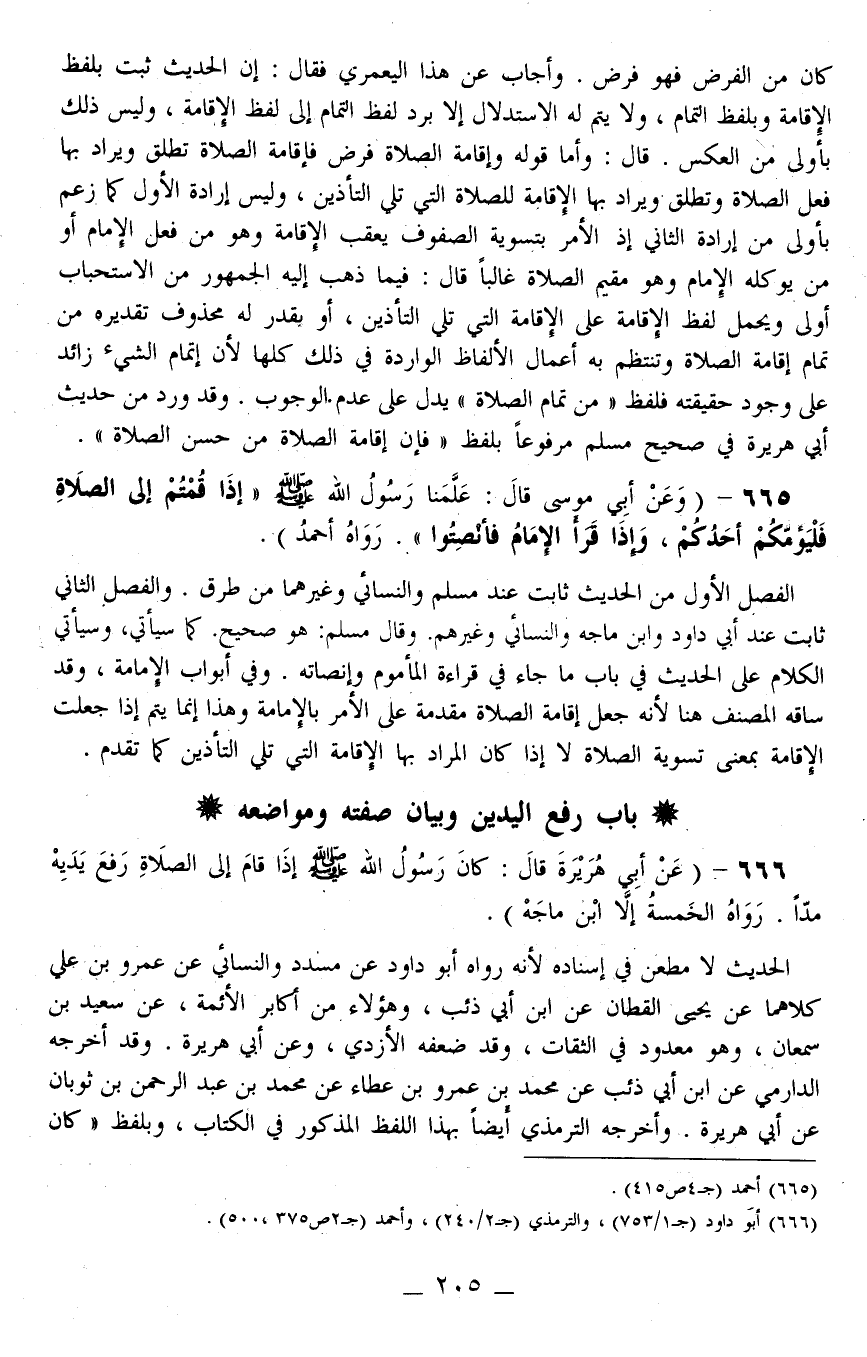 كان من الفرض فهو فرض . وأجاب عن هذا اليعمري فقال : إن الحديث ثبت بلفظ
الإقامة وبلفظ التمام ، ولا يتم له الاستدلال إلا برد لفظ التمام إلى لفظ الإقامة ، وليس ذلك
بأولى من العكس . قال : وأما قوله وإقامة الصلاة فرض فإقامة الصلاة تطلق ويراد بها
فعل الصلاة وتطلق ويراد بها الإقامة للصلاة التي تلي التأذين ، وليس إرادة الأول كما زعم
بأولى من إرادة الثاني إذ الأمر بتسوية الصفوف يعقب الإقامة وهو من فعل الإمام أو
من يوكله الإمام وهو مقيم الصلاة غالباً قال : فيما ذهب إليه الجمهور من الاستحباب
أولى ويحمل لفظ الإقامة على الإقامة التي تلي التأذين ، أو بقدر له محذوف تقديره من
تمام إقامة الصلاة وتنتظم به أعمال الألفاظ الواردة في ذلك كلها لأن إتمام الشيء زائد
على وجود حقيقته فلفظ « من تمام الصلاة » يدل على عدم الوجوب . وقد ورد من حديث
أبي هريرة في صحيح مسلم مرفوعاً بلفظ « فإن إقامة الصلاة من حسن الصلاة » .
٦٦٥ – ( وَعَنْ أبي موسى قالَ : عَلَّمَنا رَسُولُ الله ﷺ « إذَا قُمْتُمْ إلى الصلَاةِ
فَلْيَؤمّكُمْ أحَدُكُمْ ، وَإذَا قَرَأَ الإمَامُ فأنْصِتُوا » . رَوَاهُ أحمدُ ) .
الفصل الأول من الحديث ثابت عند مسلم والنسائي وغيرهما من طرق . والفصل الثاني
ثابت عند أبي داود وابن ماجه والنسائي وغيرهم. وقال مسلم: هو صحيح. كما سيأتي، وسيأتي
الكلام على الحديث في باب ما جاء في قراءة المأموم وإنصاته . وفي أبواب الإمامة ، وقد
ساقه المصنف هنا لأنه جعل إقامة الصلاة مقدمة على الأمر بالإمامة وهذا إنما يتم إذا جعلت
الإقامة بمعنى تسوية الصلاة لا إذا كان المراد بها الإقامة التي تلي التأذين كما تقدم .
✸ باب رفع اليدين وبيان صفته ومواضعه ✸
٦٦٦ – ( عَنْ أبي هُرَيْرَةَ قالَ : كانَ رَسُولُ الله ﷺ إذَا قامَ إلى الصلَاةِ رَفَعَ يَدَيهْ
مدّاً . رَوَاهُ الخَمسةُ إلَّا ابْن ماجَهْ ) .
الحديث لا مطعن في إسناده لأنه رواه أبو داود عن مسدد والنسائي عن عمرو بن علي
كلاهما عن يحيى القطان عن ابن أبي ذئب ، وهؤلاء من أكابر الأئمة ، عن سعيد بن
سمعان ، وهو معدود في الثقات ، وقد ضعفه الأزدي ، وعن أبي هريرة . وقد أخرجه
الدارمي عن ابن أبي ذئب عن محمد بن عمرو بن عطاء عن محمد بن عبد الرحمن بن ثوبان
عن أبي هريرة . وأخرجه الترمذي أيضاً بهذا اللفظ المذكور في الكتاب ، وبلفظ « كان
(٦٦٥) أحمد (جـ٤ص٤١٥) .
(٦٦٦) أبو داود (جـ٧٥٣/١) ، والترمذي (جـ٢٤٠/٢) ، وأحمد (جـ٢ص٣٧٥ ،٥٠٠) .
– ٢٠٥ –